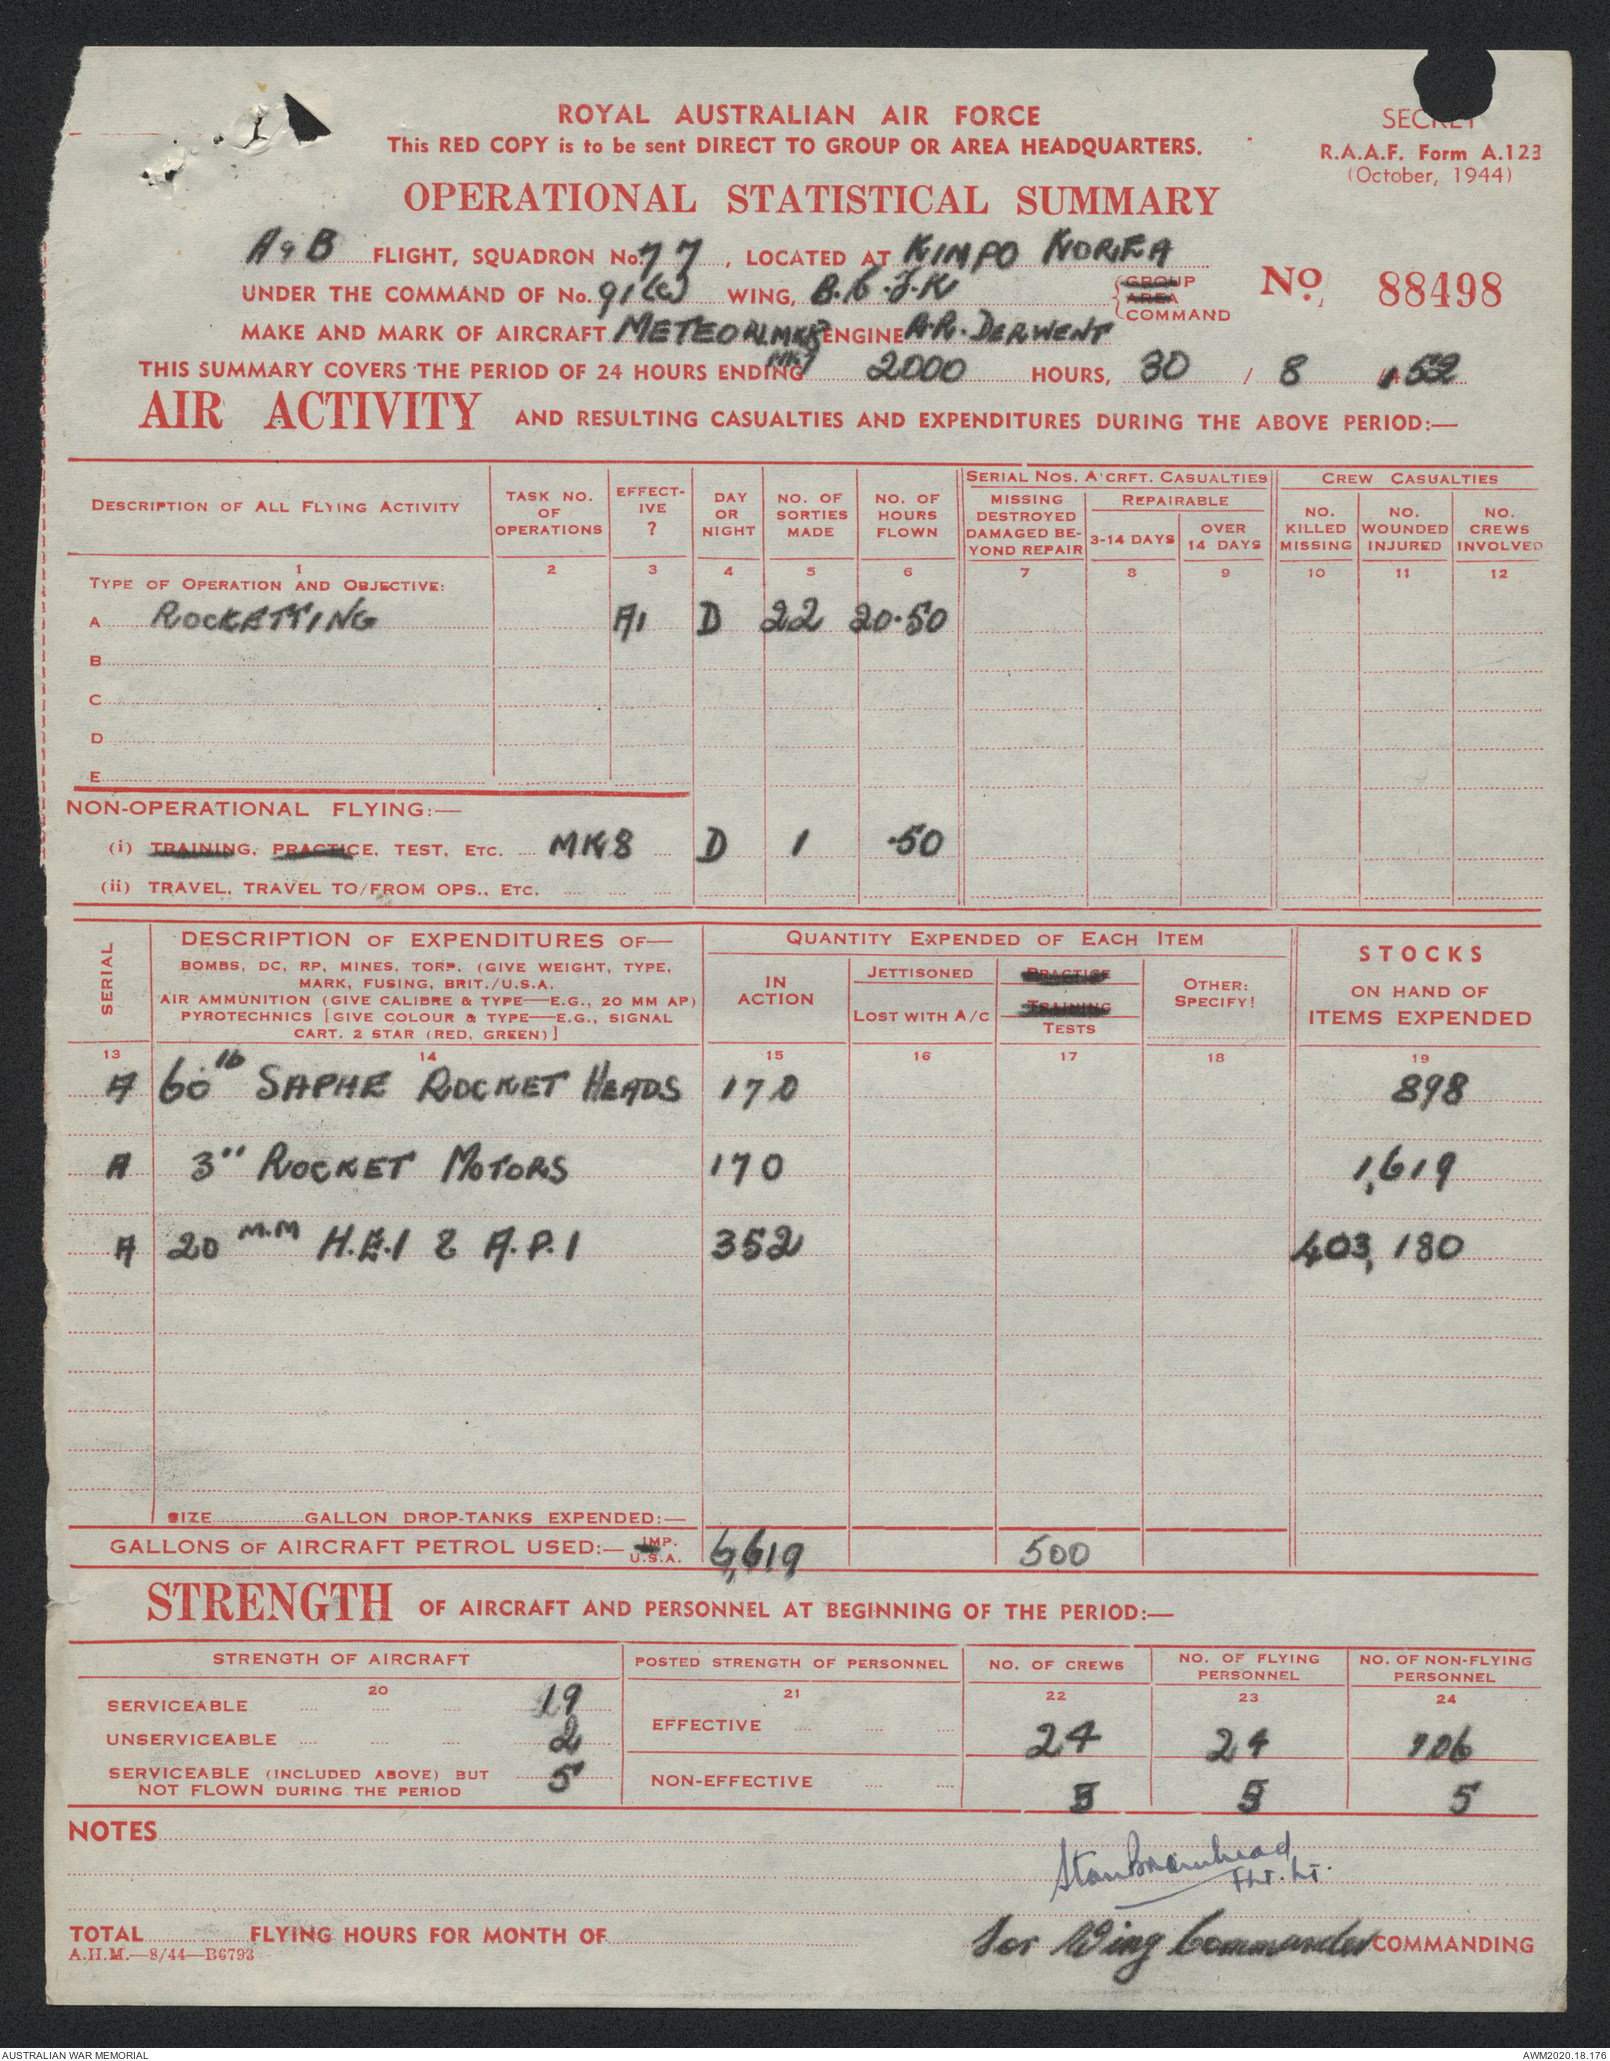 ROYAL AUSTRALIAN AIR FORCE
This RED COPY is to be sent DIRECT TO GROUP OR AREA HEADQUARTERS.
SECRET
R.A.A.F. Form A.123
(October, 1944)
OPERATIONAL STATISTICAL SUMMARY
A & B FLIGHT, SQUADRON No. 77, LOCATED AT KIMPO KOREA
UNDER THE COMMAND OF No. 91(C) WING, B.C.F.K GROUP AREA COMMAND
No. 88498
MAKE AND MARK OF AIRCRAFT METEOR MK8 ENGINE R.R. DERWENT
MK7
THIS SUMMARY COVERS THE PERIOD OF 24 HOURS ENDING 2000 HOURS, 30 / 8 / 52
AIR ACTIVITY AND RESULTING CASUALTIES AND EXPENDITURES DURING THE ABOVE PERIOD:—
DESCRIPTION OF ALL FLYING ACTIVITY
TASK NO. OF OPERATIONS
EFFECT-IVE ?
DAY OR NIGHT
NO. OF SORTIES MADE
NO. OF HOURS FLOWN
SERIAL NOS. A'CRFT. CASUALTIES
MISSING DESTROYED DAMAGED BE-YOND REPAIR
REPAIRABLE
3-14 DAYS
OVER 14 DAYS
CREW CASUALTIES
NO. KILLED MISSING
NO. WOUNDED INJURED
NO. CREWS INVOLVED
1 2 3 4 5 6 7 8 9 10 11 12
TYPE OF OPERATION AND OBJECTIVE:
A ROCKETTING A1 D 22 20.50
B
C
D
E
NON-OPERATIONAL FLYING:—
(i) TRAINING, PRACTICE, TEST, ETC. MK8 D 1 .50
(ii) TRAVEL, TRAVEL TO/FROM OPS., ETC.
SERIAL
DESCRIPTION OF EXPENDITURES OF—
BOMBS, DC, RP, MINES, TORP. (GIVE WEIGHT, TYPE,
MARK, FUSING, BRIT./U.S.A.
AIR AMMUNITION (GIVE CALIBRE & TYPE—E.G., 20 MM AP)
PYROTECHNICS [GIVE COLOUR & TYPE—E.G., SIGNAL
CART. 2 STAR (RED, GREEN)]
QUANTITY EXPENDED OF EACH ITEM
IN ACTION
JETTISONED
LOST WITH A/C
PRACTICE
TRAINING
TESTS
OTHER: SPECIFY!
STOCKS
ON HAND OF
ITEMS EXPENDED
13 14 15 16 17 18 19
A 60 lb SAPHE ROCKET HEADS 170 898
A 3" ROCKET MOTORS 170 1,619
A 20 M.M H.E.I & A.P.I 352 403,180
SIZE GALLON DROP-TANKS EXPENDED:—
GALLONS OF AIRCRAFT PETROL USED:— IMP. U.S.A. 6,619 500
STRENGTH OF AIRCRAFT AND PERSONNEL AT BEGINNING OF THE PERIOD:—
STRENGTH OF AIRCRAFT
POSTED STRENGTH OF PERSONNEL
NO. OF CREWS
NO. OF FLYING PERSONNEL
NO. OF NON-FLYING PERSONNEL
20 21 22 23 24
SERVICEABLE 19
UNSERVICEABLE 2
SERVICEABLE (INCLUDED ABOVE) BUT NOT FLOWN DURING THE PERIOD 5
EFFECTIVE 24 24 106
NON-EFFECTIVE 3 3 5
NOTES
Stan Bromhead
FLT. LT.
for Wing Commander COMMANDING
TOTAL FLYING HOURS FOR MONTH OF
A.H.M.—8/44—B6793
AUSTRALIAN WAR MEMORIAL
AWM2020.18.176